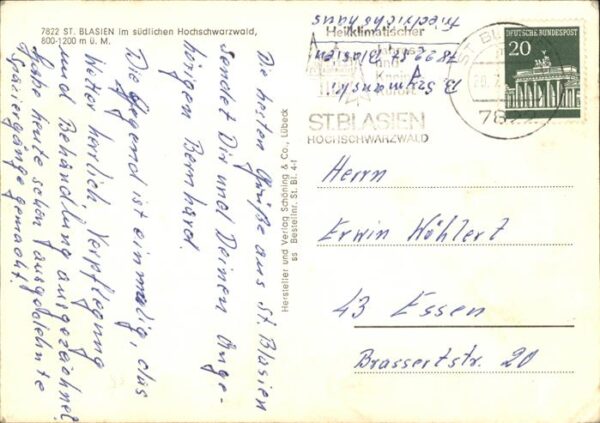 7822 ST. BLASIEN im südlichen Hochschwarzwald,
800-1200 m ü. M.
Die besten Grüße aus St. Blasien
sendet Dir und Deinen Ange-
hörigen Bernhard.
Die Gegend ist einmalig, das
Wetter herrlich, Verpflegung
und Behandlung ausgezeichnet
habe heute schon ausgedehnte
Spaziergänge gemacht.
Hersteller und Verlag Schöning & Co., Lübeck
ss Bestellnr. St. Bl. 4-1
B
7899 St. Blasien
Friedrichshaus
Heilklimatischer
Jahres
und
Kneipp
Kurort
ST.BLASIEN
HOCHSCHWARZWALD
ST. BL
78
DEUTSCHE BUNDESPOST
20
Herrn
Erwin Wöhlert
43 Essen
Brassertstr. 20